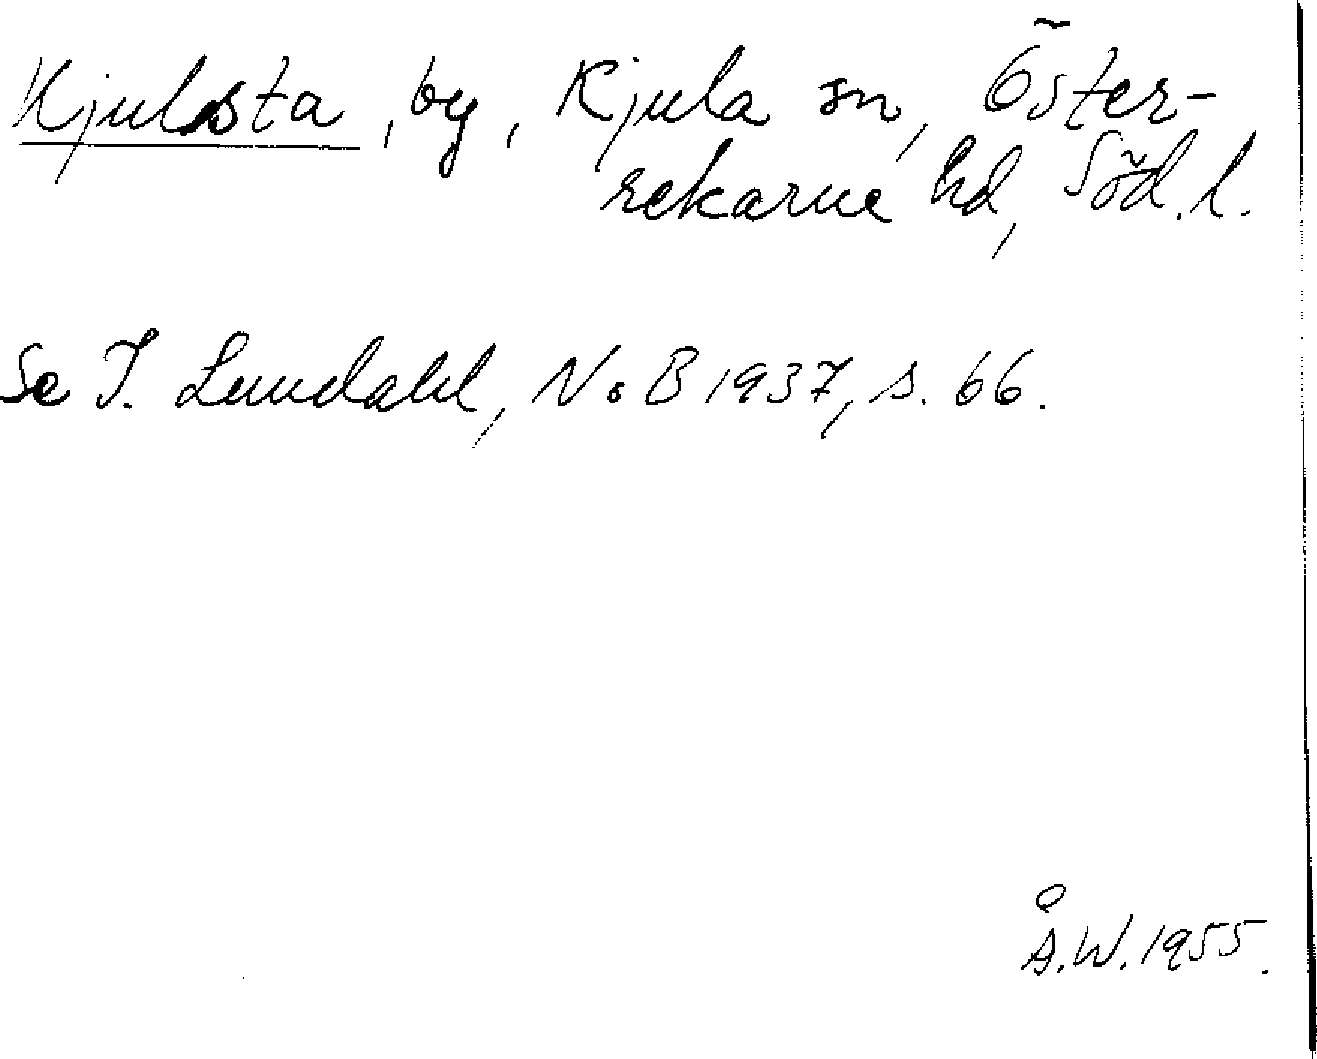 Kjulsta, by, Kjula sn, Öster-
rekarne hd, Söd. l.
Se I. Lundahl, NoB 1937, s. 66.
Å.W. 1955.